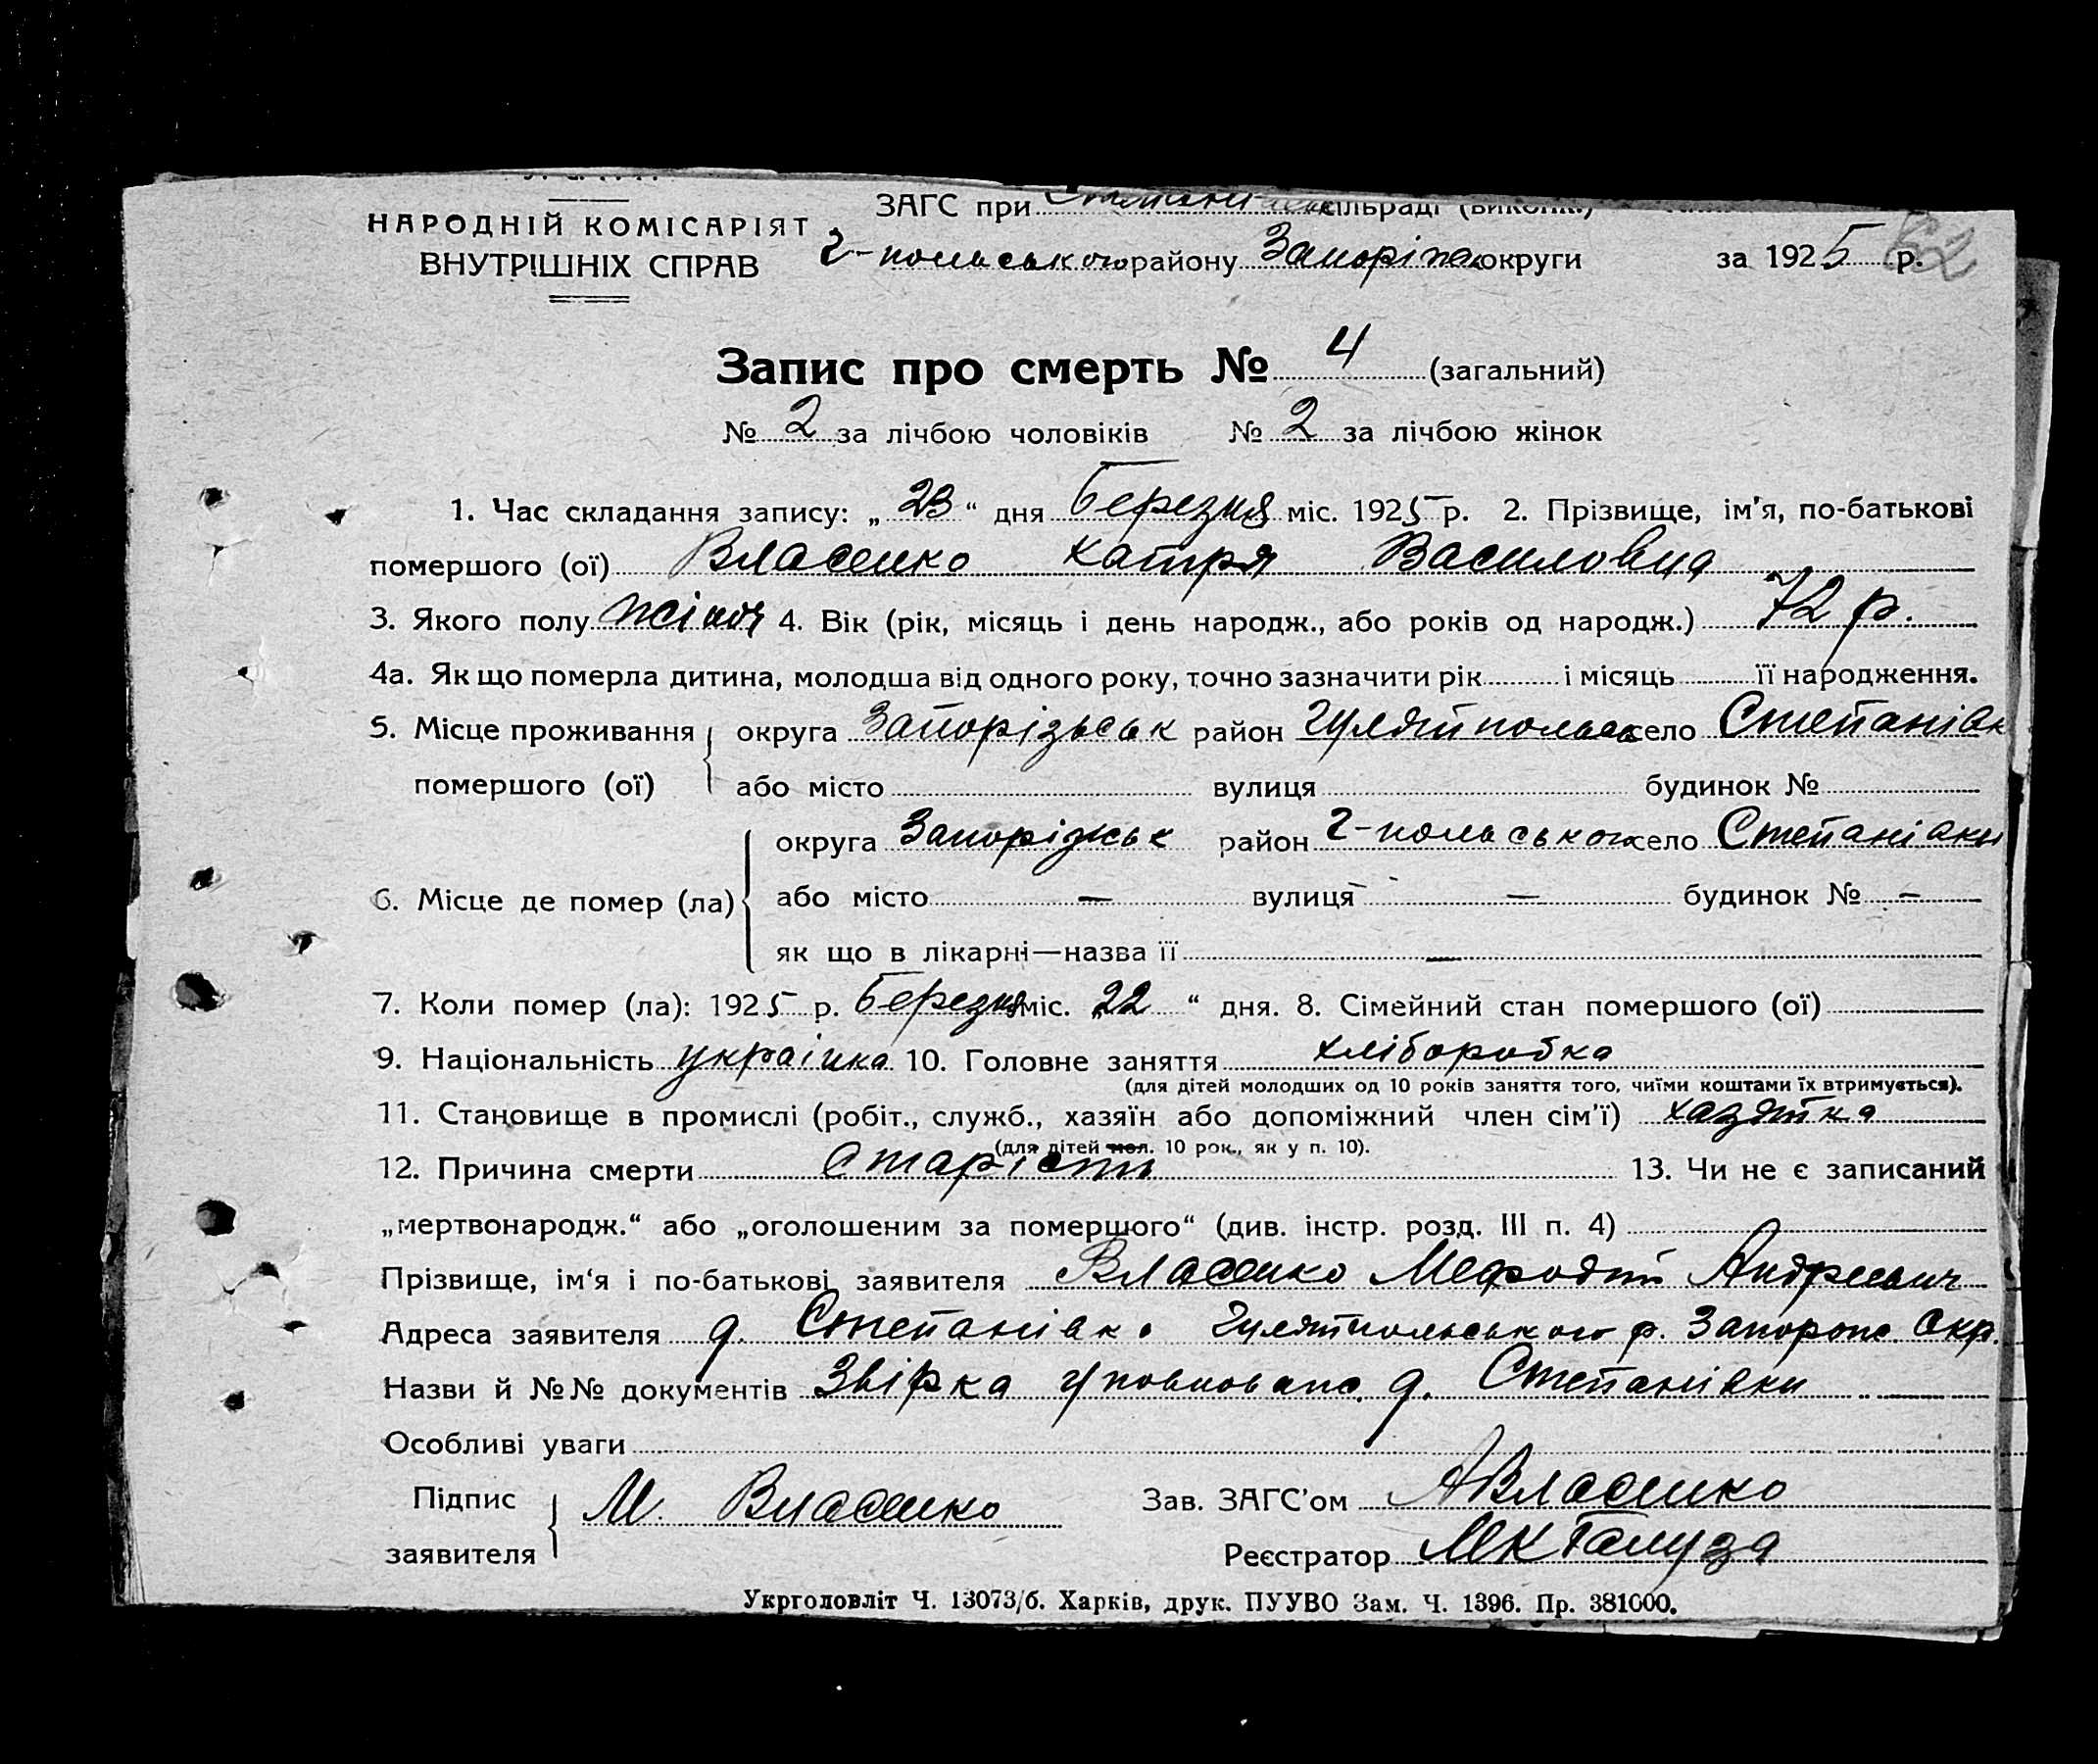 ЗАГС при сільраді (виконк.)
НАРОДНІЙ КОМІСАРІЯТ
ВНУТРІШНІХ СПРАВ
Г-польського району Запоріж округи за 1925 р. 62
Запис про смерть № 4 (загальний)
№ 2 за лічбою чоловіків № 2 за лічбою жінок
1. Час складання запису: „23“ дня Березня міс. 1925 р. 2. Прізвище, ім'я, по-батькові
помершого (ої) Власенко Катря Василовна
3. Якого полу жіноч 4. Вік (рік, місяць і день народж., або років од народж.) 72 р.
4а. Як що померла дитина, молодша від одного року, точно зазначити рік і місяць її народження.
5. Місце проживання помершого (ої) округа Запорізьськ район Гуляйпольськ село Степанівк
або місто вулиця будинок №
6. Місце де помер (ла) округа Запоріжськ район Г-польського село Степанівки
або місто — вулиця — будинок № —
як що в лікарні—назва її —
7. Коли помер (ла): 1925 р. Березня міс. „22“ дня. 8. Сімейний стан помершого (ої)
9. Національність українка 10. Головне заняття хліборобка
(для дітей молодших од 10 років заняття того, чиїми коштами їх втримується).
11. Становище в промислі (робіт., служб., хазяїн або допоміжний член сім'ї) хазяйка
(для дітей мол. 10 рок., як у п. 10).
12. Причина смерти Старість 13. Чи не є записаний
„мертвонародж.“ або „оголошеним за помершого“ (див. інстр. розд. III п. 4)
Прізвище, ім'я і по-батькові заявителя Власенко Мефодій Андреевич
Адреса заявителя д. Степанівк. Гуляйпольського р. Запорож Окр.
Назви й №№ документів Звірка уповноваж. д. Степанівки
Особливі уваги
Підпис заявителя М. Власенко Зав. ЗАГС'ом А Власенко
Реєстратор МК Галуза
Укрголовліт Ч. 13073/б. Харків, друк. ПУУВО Зам. Ч. 1396. Пр. 381000.